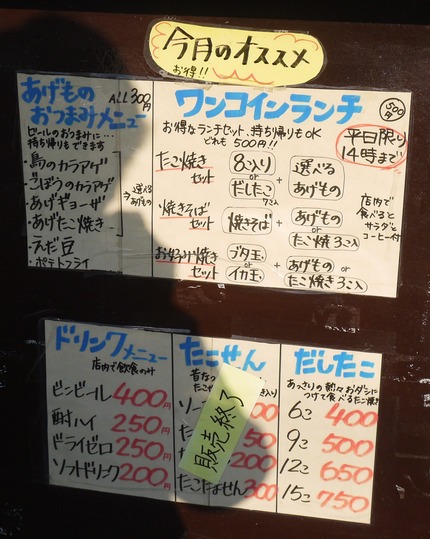 今月のオススメ
お得!!
あげもの
おつまみメニュー
ALL300円
ビールのおつまみに…
持ち帰りもできます
・鳥のカラアゲ
・ごぼうのカラアゲ
・あげギョーザ
・あげたこ焼き
・えだ豆
・ポテトフライ
選べる
あげもの
ワンコインランチ
500円
お得なランチセット、持ち帰りもOK
どれも500円!!
平日限り
14時まで
たこ焼き
セット
8こ入り
or
だしたこ
7こ入
+
選べる
あげもの
焼きそば
セット
焼きそば
+
あげもの
or
たこ焼3こ入
お好み焼き
セット
ブタ玉
or
イカ玉
+
あげもの
or
たこ焼き3こ入
店内で
食べると
サラダと
コーヒー付
ドリンクメニュー
店内で飲食のみ
ビンビール400円
酎ハイ250円
ドライゼロ250円
ソフトドリンク200円
たこせん
販売終了
たこたませんこ300
だしたこ
あっさりの熱々おダシに
つけて食べるたこ焼き
6こ 400
9こ 500
12こ 650
15こ 750